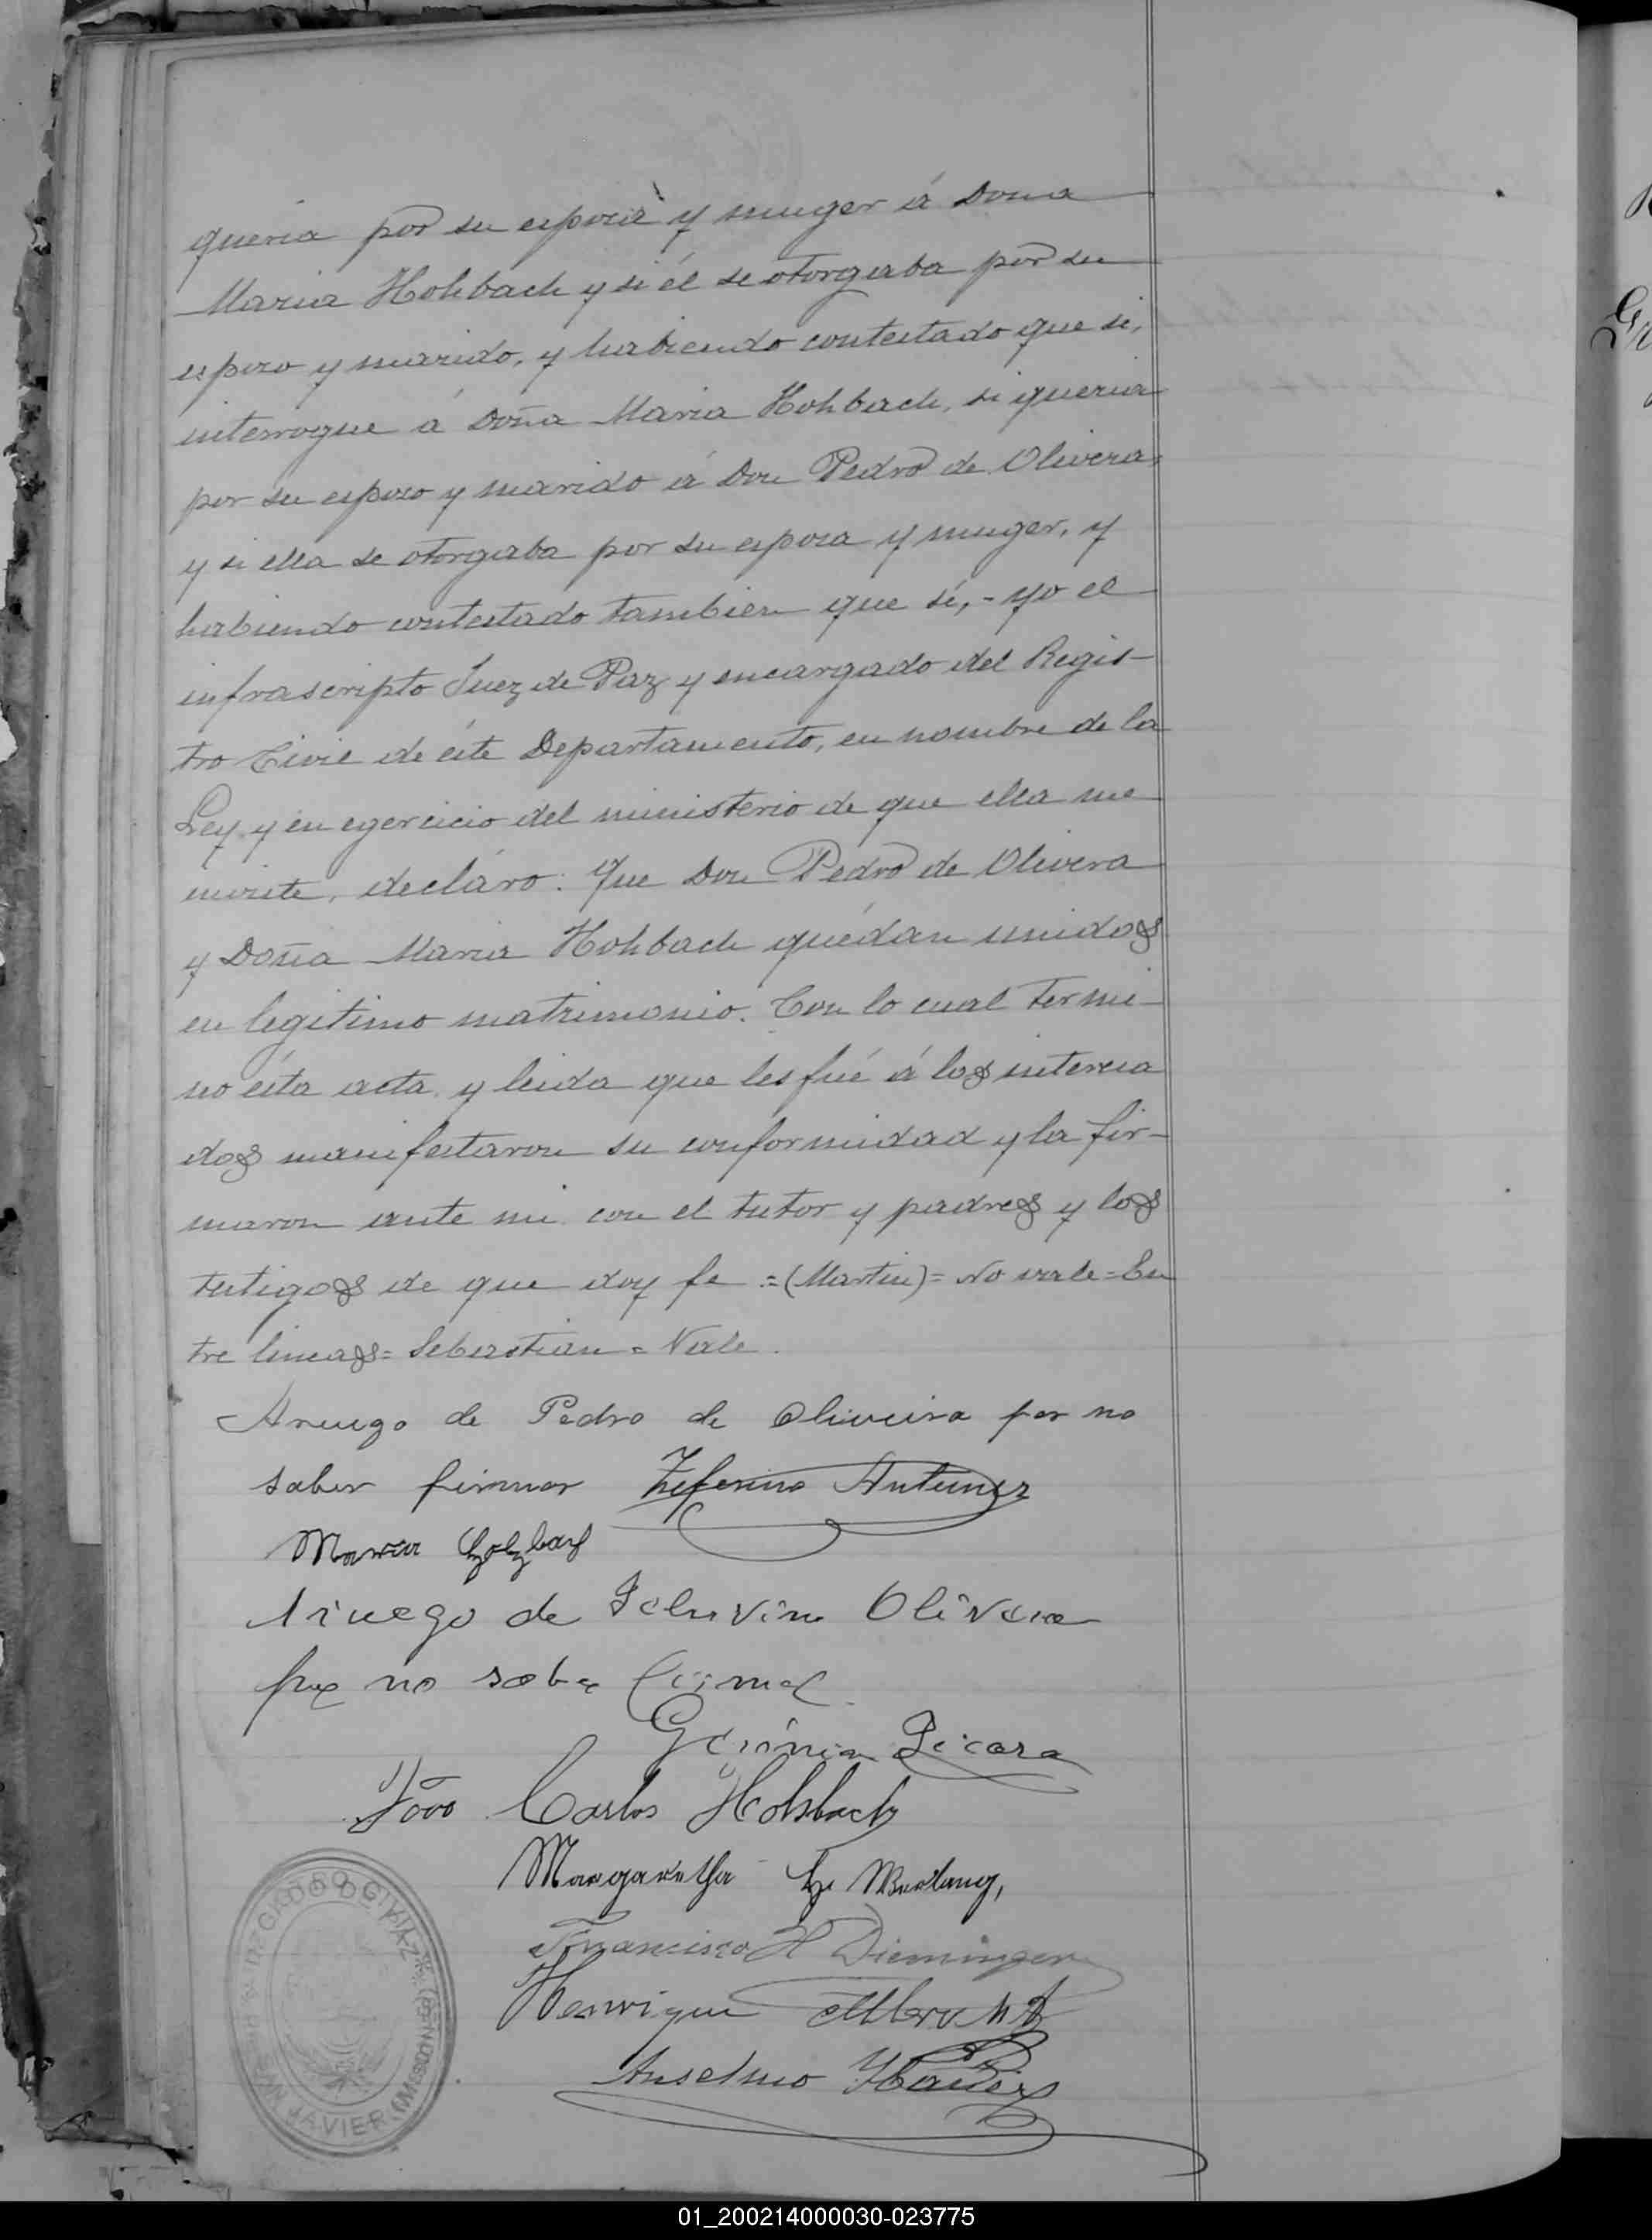 queria por su espoza y muger á Doña
Maria Hohbach y si él se otorgaba por su
espozo y marido, y habiendo contestado que si,
interrogue á Doña Maria Hohbach, si queria
por su espozo y marido á Don Pedro de Olivera,
y si ella se otorgaba por su espoza y muger, y
habiendo contestado tambien que sí, - yo el
infrascripto Juez de Paz y encargado del Regis-
tro Civil de éste Departamento, en nombre de la
Ley y en egercicio del ministerio de que ella me
inviste, decláro: Que Don Pedro de Olivera
y Doña Maria Hohbach quédan unidos
en legitimo matrimonio. Con lo cual termi-
no ésta acta y leida que les fué á los interesa
dos manifestaron su conformidad y la fir-
maron ante mi con el tutor y padres y los
testigos de que doy fe = (Martin) = No vale = En
tre lineas = Sebastian = Vale.
Aruego de Pedro de Oliveira por no
saber firmar Zeferino Antunez
Maria Holzbach
Aruego de Olivera
por no sabe firmar
João Carlos Hohbach
Margaretha
Francisco H Dieminger
Henrique
Anselmo
JUZGADO DE PAZ
SAN JAVIER (MISIONES)
01_200214000030-023775